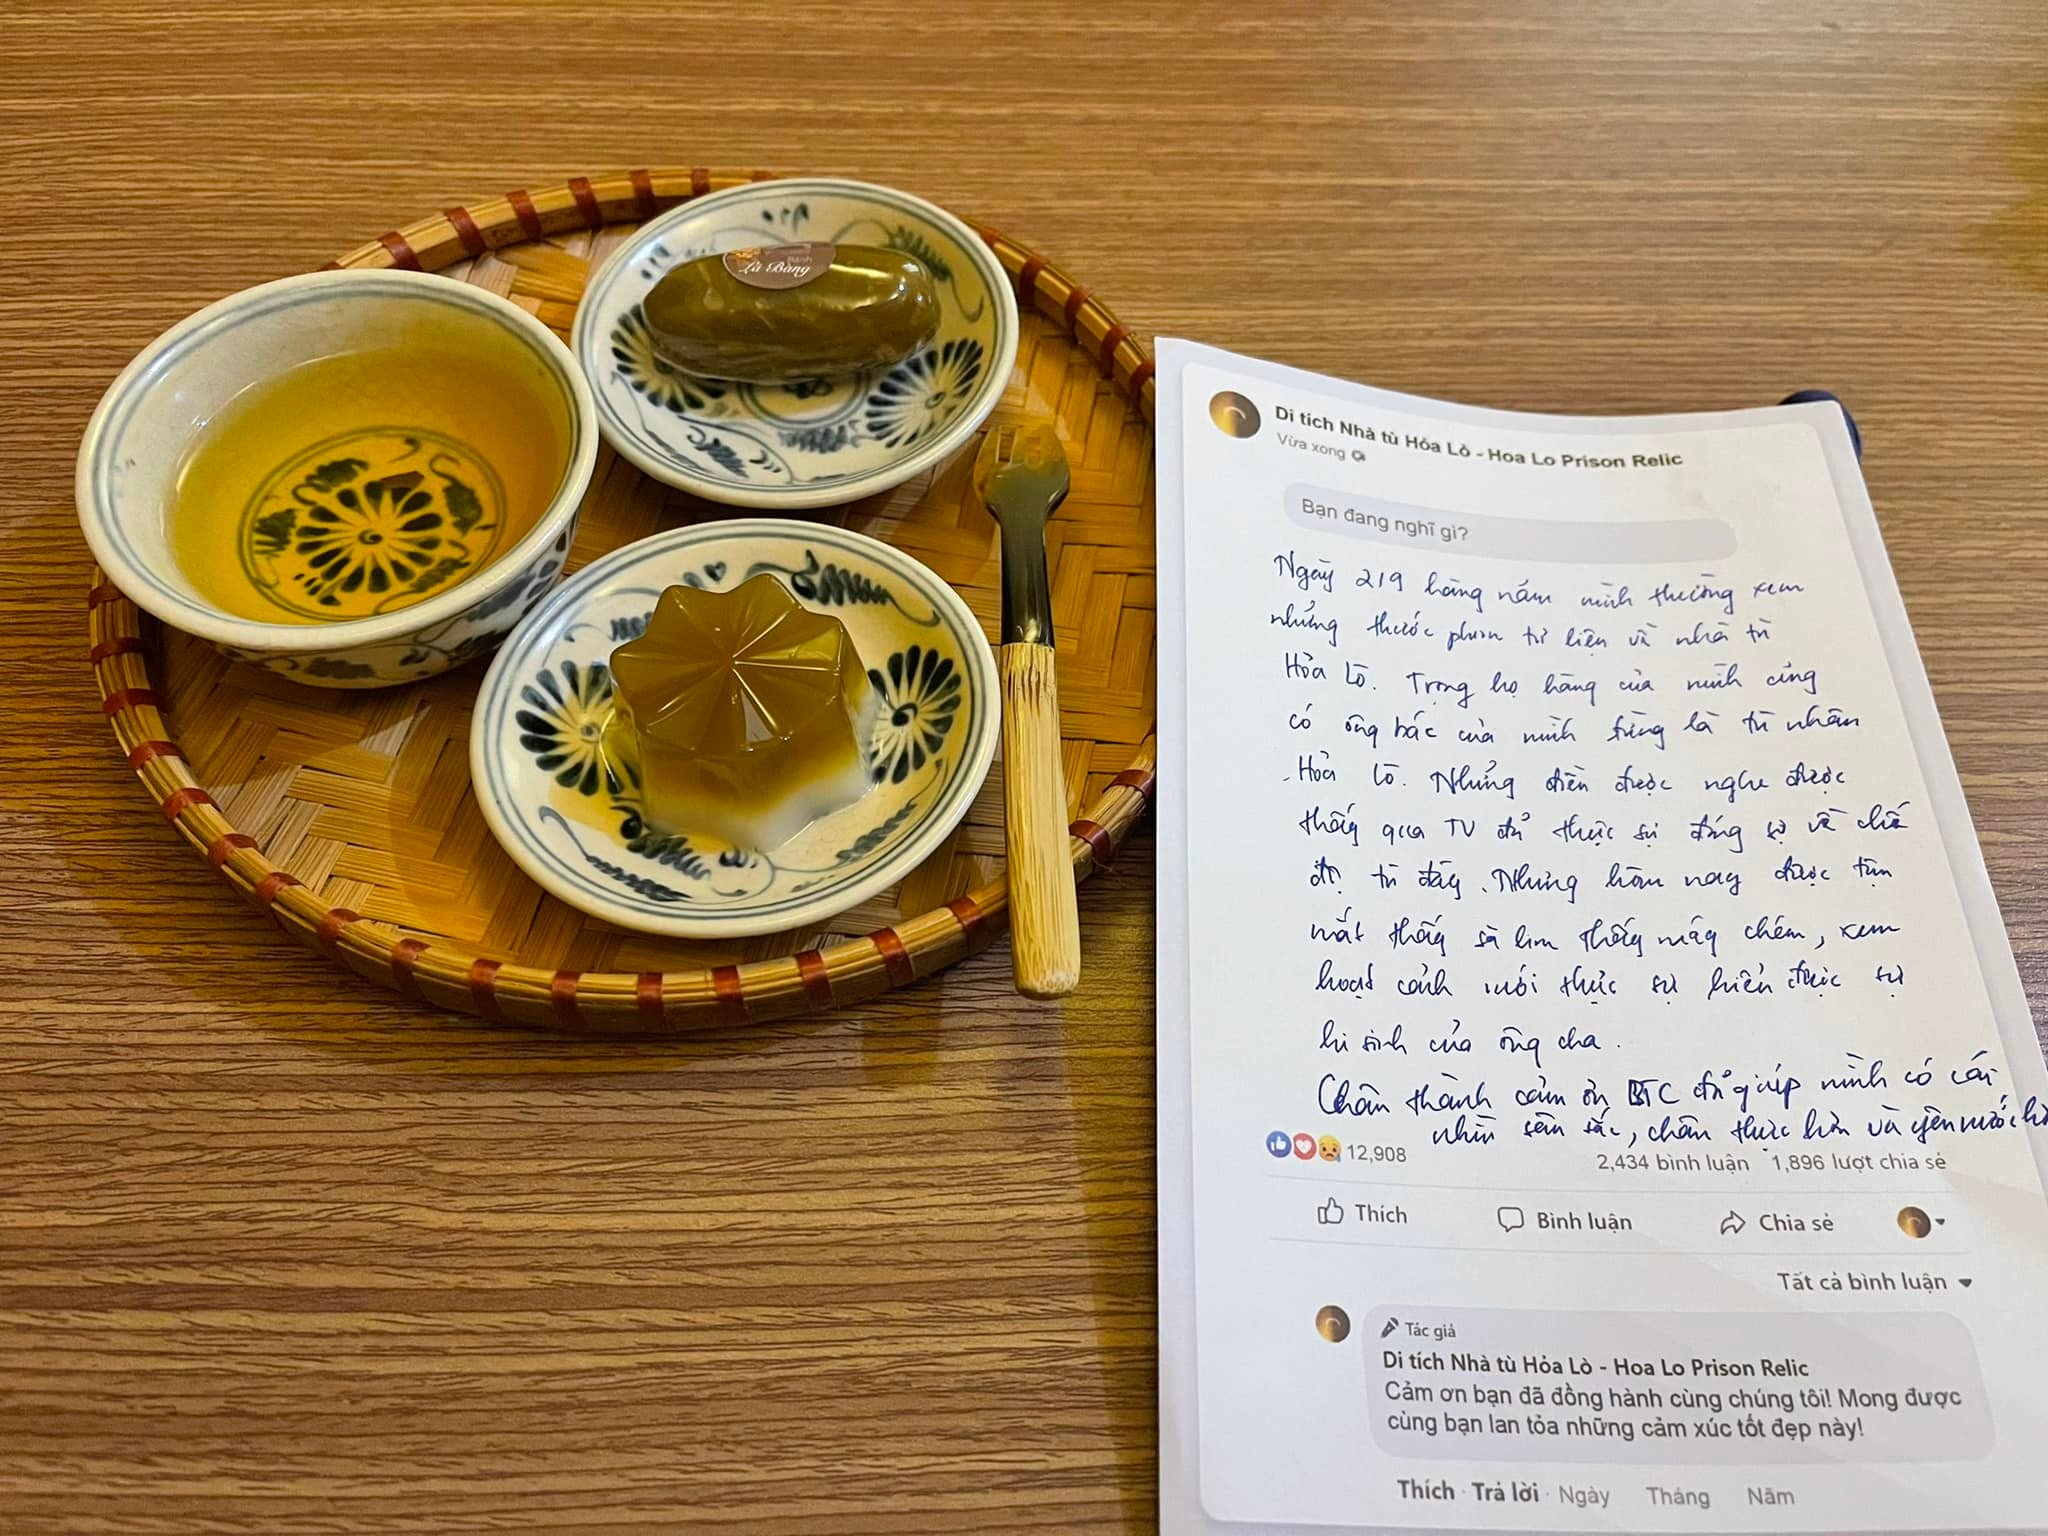 Bánh
Lá Bàng
Di tích Nhà tù Hỏa Lò - Hoa Lo Prison Relic
Vừa xong
Bạn đang nghĩ gì?
Ngày 2/9 hàng năm mình thường xem
những thước phim tư liệu về nhà tù
Hỏa Lò. Trong họ hàng của mình cũng
có ông bác của mình từng là tù nhân
Hỏa Lò. Những điều được nghe được
thấy qua TV đã thực sự đáng sợ về chế
độ tù đày. Nhưng hôm nay được tận
mắt thấy sà lim thấy máy chém, xem
hoạt cảnh mới thực sự hiểu được sự
hi sinh của ông cha.
Chân thành cảm ơn BTC đã giúp mình có cái
nhìn sâu sắc, chân thực hơn và yêu nước
12,908
2,434 bình luận 1,896 lượt chia sẻ
Thích Bình luận Chia sẻ
Tất cả bình luận
Tác giả
Di tích Nhà tù Hỏa Lò - Hoa Lo Prison Relic
Cảm ơn bạn đã đồng hành cùng chúng tôi! Mong được
cùng bạn lan tỏa những cảm xúc tốt đẹp này!
Thích · Trả lời · Ngày Tháng Năm